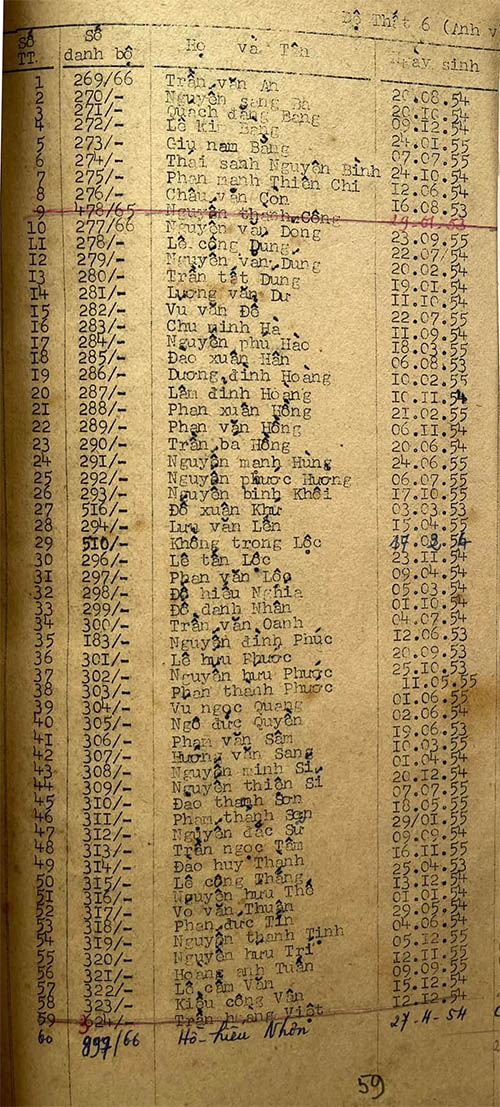 Đệ Thất 6 (Anh v
Số TT. Số danh bộ Họ và Tên Ngày sinh
1 269/66 Trần văn An
2 270/- Nguyễn sang Ba 20.08.54
3 271/- Quach đăng Bang 20.10.54
4 272/- Lê kim Bang 09.12.54
5 273/- Giụ nam Bảng 24.01.55
6 274/- Thai sanh Nguyên Bình 07.07.55
7 275/- Phan manh Thiên Chi 24.10.54
8 276/- Châu văn Con 12.06.54
9 478/65 Nguyễn thanh Công 16.08.53
10 277/66 Nguyễn văn Dong 19.01.53
LI 278/- Lê công Dung 23.09.55
I2 279/- Nguyễn văn Dung 22.07/54
I3 280/- Trần tất Dung 20.02.54
I4 281/- Lương văn Dư 19.01.54
I5 282/- Vu văn Đê 11.10.54
I6 283/- Chu minh Hà 22.07.55
I7 284/- Nguyễn phu Hào 11.09.54
I8 285/- Đao xuân Hân 18.03.55
I9 286/- Dương đình Hoàng 06.08.53
20 287/- Lâm đinh Hoang 10.02.55
2I 288/- Phan xuân Hồng 10.11.54
22 289/- Phan văn Hồng 21.02.55
23 290/- Trần ba Hồng 06.11.54
24 291/- Nguyễn manh Hùng 20.06.54
25 292/- Nguyễn phước Hương 24.06.55
26 293/- Nguyễn binh Khôi 06.07.55
27 516/- Đỗ xuân Khư 17.10.55
28 294/- Lưu văn Lên 03.03.53
29 510/- Không trong Lộc 15.04.55
30 296/- Lê tấn Lộc
3I 297/- Phan văn Lộc 23.11.54
32 298/- Đỗ hiếu Nghia 09.04.54
33 299/- Đỗ danh Nhân 05.03.54
34 300/- Trần văn Oanh 01.10.54
35 183/- Nguyễn đình Phúc 04.07.54
36 301/- Lê hưu Phước 12.06.53
37 302/- Nguyễn hưu Phước 20.09.53
38 303/- Phan thanh Phước 25.10.53
39 304/- Vu ngọc Quang 11.05.55
40 305/- Ngô đức Quyền 01.06.55
4I 306/- Phạm văn Sâm 02.06.54
42 307/- Hương văn Sang 19.06.53
43 308/- Nguyễn minh Si 10.03.55
44 309/- Nguyễn thiên Si 01.04.54
45 310/- Đao thanh Sơn 20.12.54
46 311/- Pham thanh Sơn 07.07.55
47 312/- Nguyễn đắc Sử 18.05.55
48 313/- Trần ngọc Tâm 29/01.55
49 314/- Đao huy Thanh 09.09.54
50 315/- Lê công Thăng 16.11.55
51 316/- Nguyễn hưu Thố 25.04.53
52 317/- Vo văn Thuận 13.12.54
53 318/- Phan đưc Tín 01.01.54
54 319/- Nguyễn thanh Tịnh 29.05.54
55 320/- Nguyễn hưu Trí 04.06.54
56 321/- Hoang anh Tuân 05.12.55
57 322/- Lê câm Vân 12.11.55
58 323/- Kiều công Vân 09.09.55
59 324/- Trần hoang Việt 15.12.54
12.12.54
60 897/66 Hồ-hiếu Nhơn 27-4-54
59